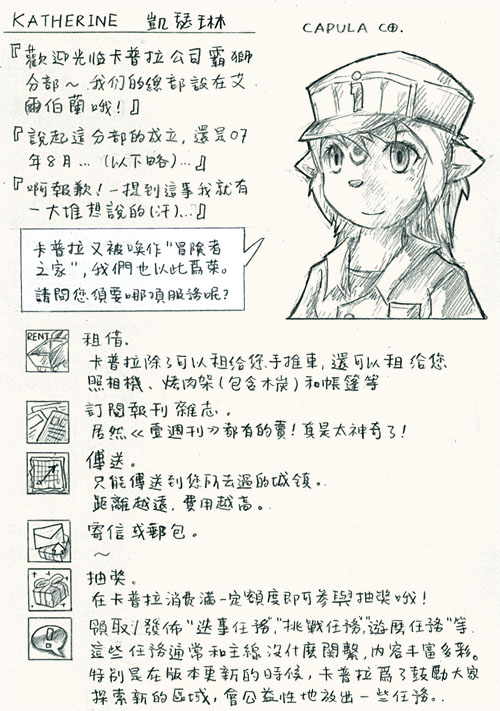 KATHERINE 凱瑟琳
CAPULA CO.
『歡迎光临卡普拉公司霸獅
分部～我们的總部設在艾
爾伯蘭哦！』
『說起這分部的成立，還是07
年8月…（以下略）…』
『啊報歉！一提到這事我就有
一大堆想說的(汗)…』
卡普拉又被喚作"冒険者
之家"，我們也以此爲荣。
請問您須要哪項服務呢？
RENT
租借．
卡普拉除了可以租给您手推車，還可以租给您
照相機、烤肉架(包含木炭)和帳篷等
訂閱報刊雜志．
居然《電週刊》都有的賣！真是太神奇了！
傳送。
只能傳送到您所去過的城領。
距離越遠，費用越高。
寄信或郵包。
～
抽奖。
在卡普拉消費滿一定額度即可參與抽奖哦！
領取/發佈"迷事任務","挑戰任務","遊歷任務"等．
這些任務通常和主線沒什麼関繫，内容丰富多彩。
特別是在版本更新的時候，卡普拉爲了鼓勵大家
探索新的區域，會公益性地放出一些任務。